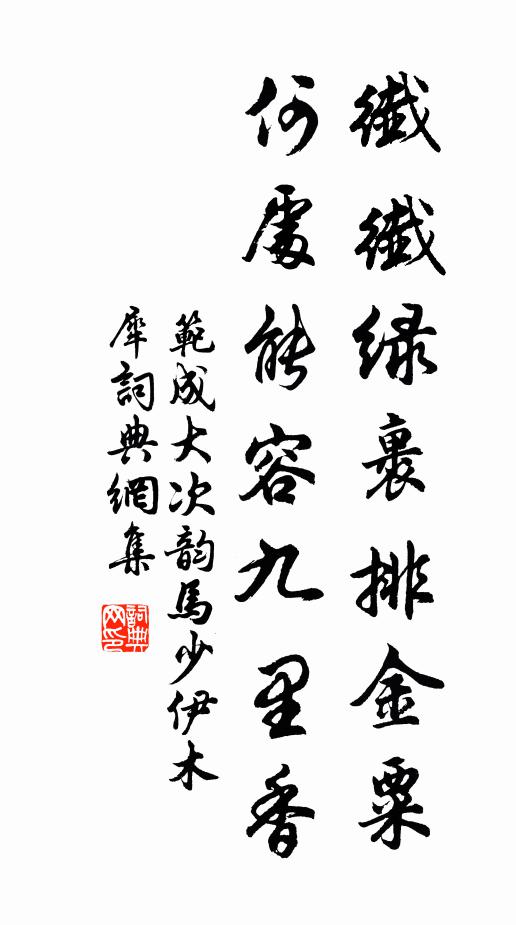 纖纖绿裹排金粟
何處能容九里香
範成大次韵馬少伊木
犀詞典網集
詞典網印